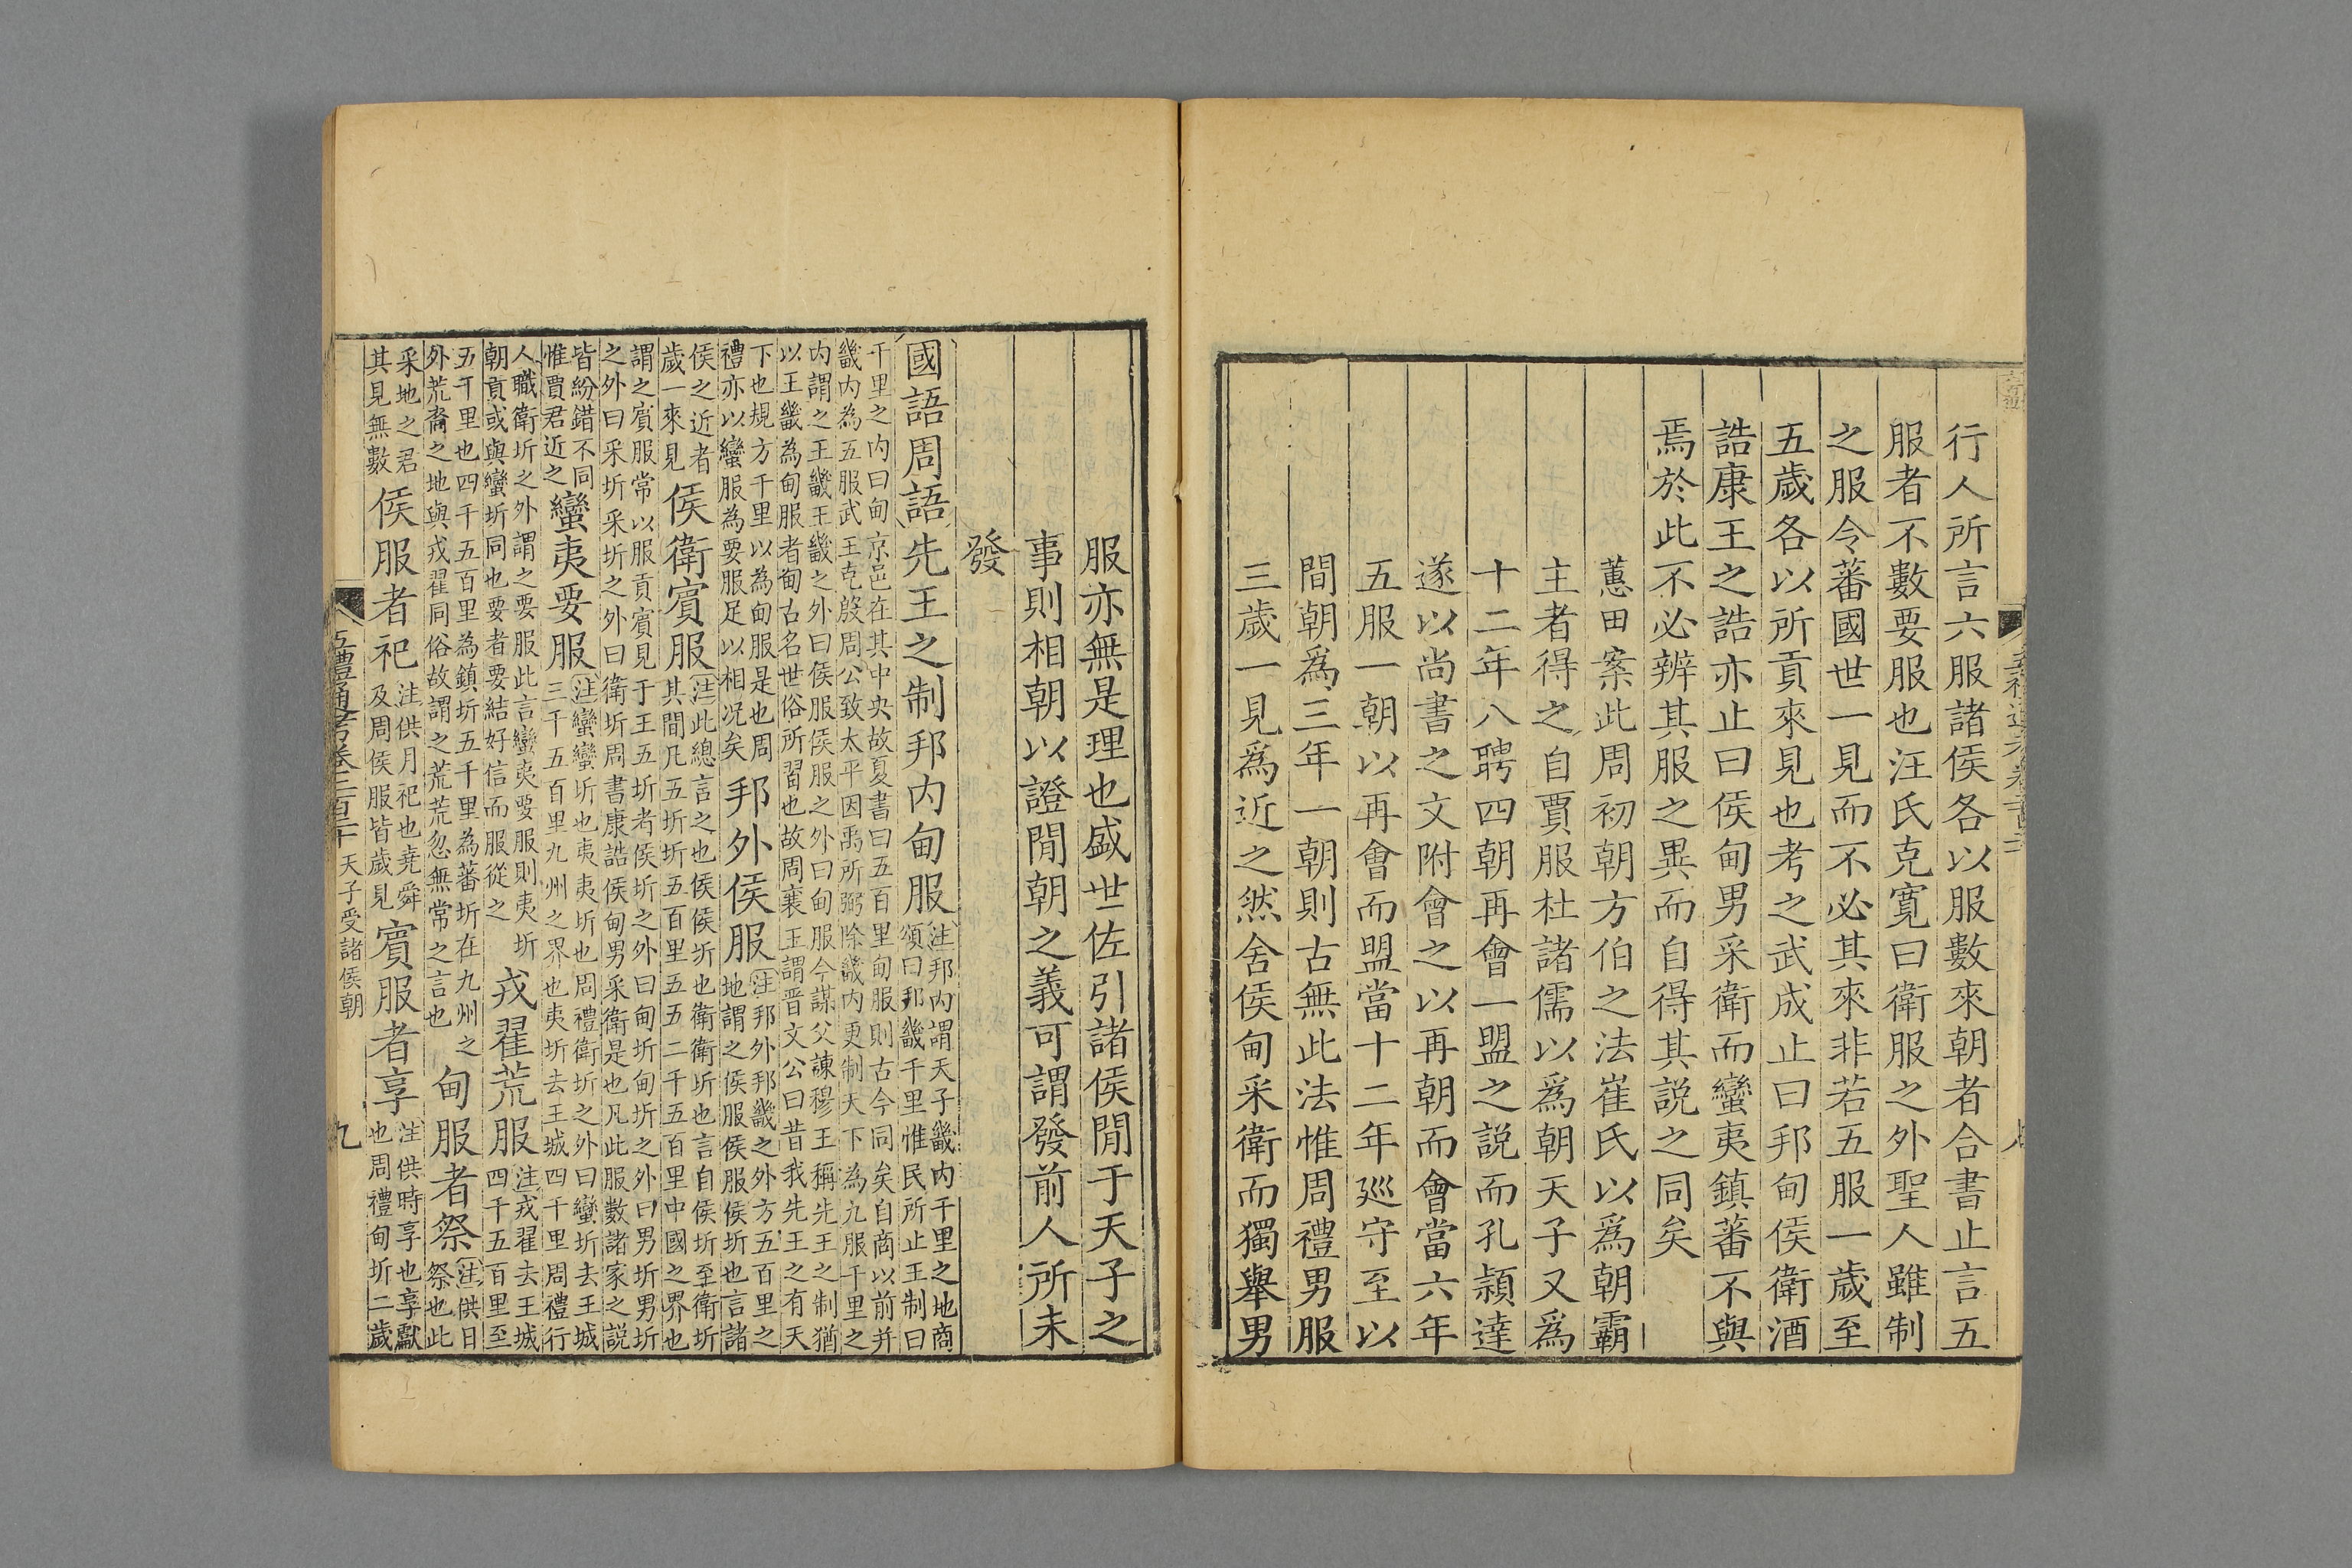 行人所言六服諸侯各以服數來朝者合書止言五
服者不數要服也汪氏克寬曰衛服之外聖人雖制
之服令蕃國世一見而不必其來非若五服一歲至
五歲各以所貢來見也考之武成止曰邦甸侯衛酒
誥康王之誥亦止曰侯甸男采衛而蠻夷鎮蕃不與
焉於此不必辨其服之異而自得其説之同矣
蕙田案此周初朝方伯之法崔氏以爲朝霸
主者得之自賈服杜諸儒以爲朝天子又爲
十二年八聘四朝再會一盟之説而孔潁達
遂以尚書之文附會之以再朝而會當六年
五服一朝以再會而盟當十二年巡守至以
間朝爲三年一朝則古無此法惟周禮男服
三歲一見爲近之然舍侯甸采衛而獨舉男
服亦無是理也盛世佐引諸侯閒于天子之
事則相朝以證閒朝之義可謂發前人所未
發
國語周語先王之制邦内甸服注邦内謂天子畿内千里之地商
頌曰邦畿千里惟民所止王制曰
千里之内曰甸京邑在其中央故夏書曰五百里甸服則古今同矣自商以前并
畿内為五服武王克殷周公致太平因禹所弼除畿内更制天下為九服千里之
内謂之王畿王畿之外曰侯服侯服之外曰甸服今謀父諫穆王稱先王之制猶
以王畿為甸服者甸古名世俗所習也故周襄王謂晋文公曰昔我先王之有天
下也規方千里以為甸服是也周
禮亦以蠻服為要服足以相况矣邦外侯服注邦外邦畿之外方五百里之
地謂之侯服侯服侯圻也言諸
侯之近者
歲一來見侯衛賓服注此總言之也侯侯圻也衛衛圻也言自侯圻至衛圻
其間凡五圻圻五百里五五二千五百里中國之界也
謂之賓服常以服貢賓見于王五圻者侯圻之外曰甸圻甸圻之外曰男圻男圻
之外曰采圻采圻之外曰衛圻周書康誥侯甸男采衛是也凡此服數諸家之説
皆紛錯不同
惟賈君近之蠻夷要服注蠻蠻圻也夷夷圻也周禮衛圻之外曰蠻圻去王城
三千五百里九州之界也夷圻去王城四千里周禮行
人職衛圻之外謂之要服此言蠻夷要服則夷圻
朝貢或與蠻圻同也要者要結好信而服從之戎翟荒服注戎翟去王城
四千五百里至
五千里也四千五百里為鎮圻五千里為蕃圻在九州之
外荒裔之地與戎翟同俗故謂之荒荒忽無常之言也甸服者祭注供日
祭也此
采地之君
其見無數侯服者祀注供月祀也堯舜
及周侯服皆歲見賓服者享注供時享也享獻
也周禮甸圻二歲
五禮通考卷二百二十　天子受諸侯朝　九